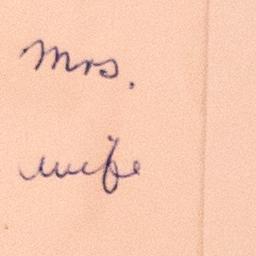 Mrs.
wife